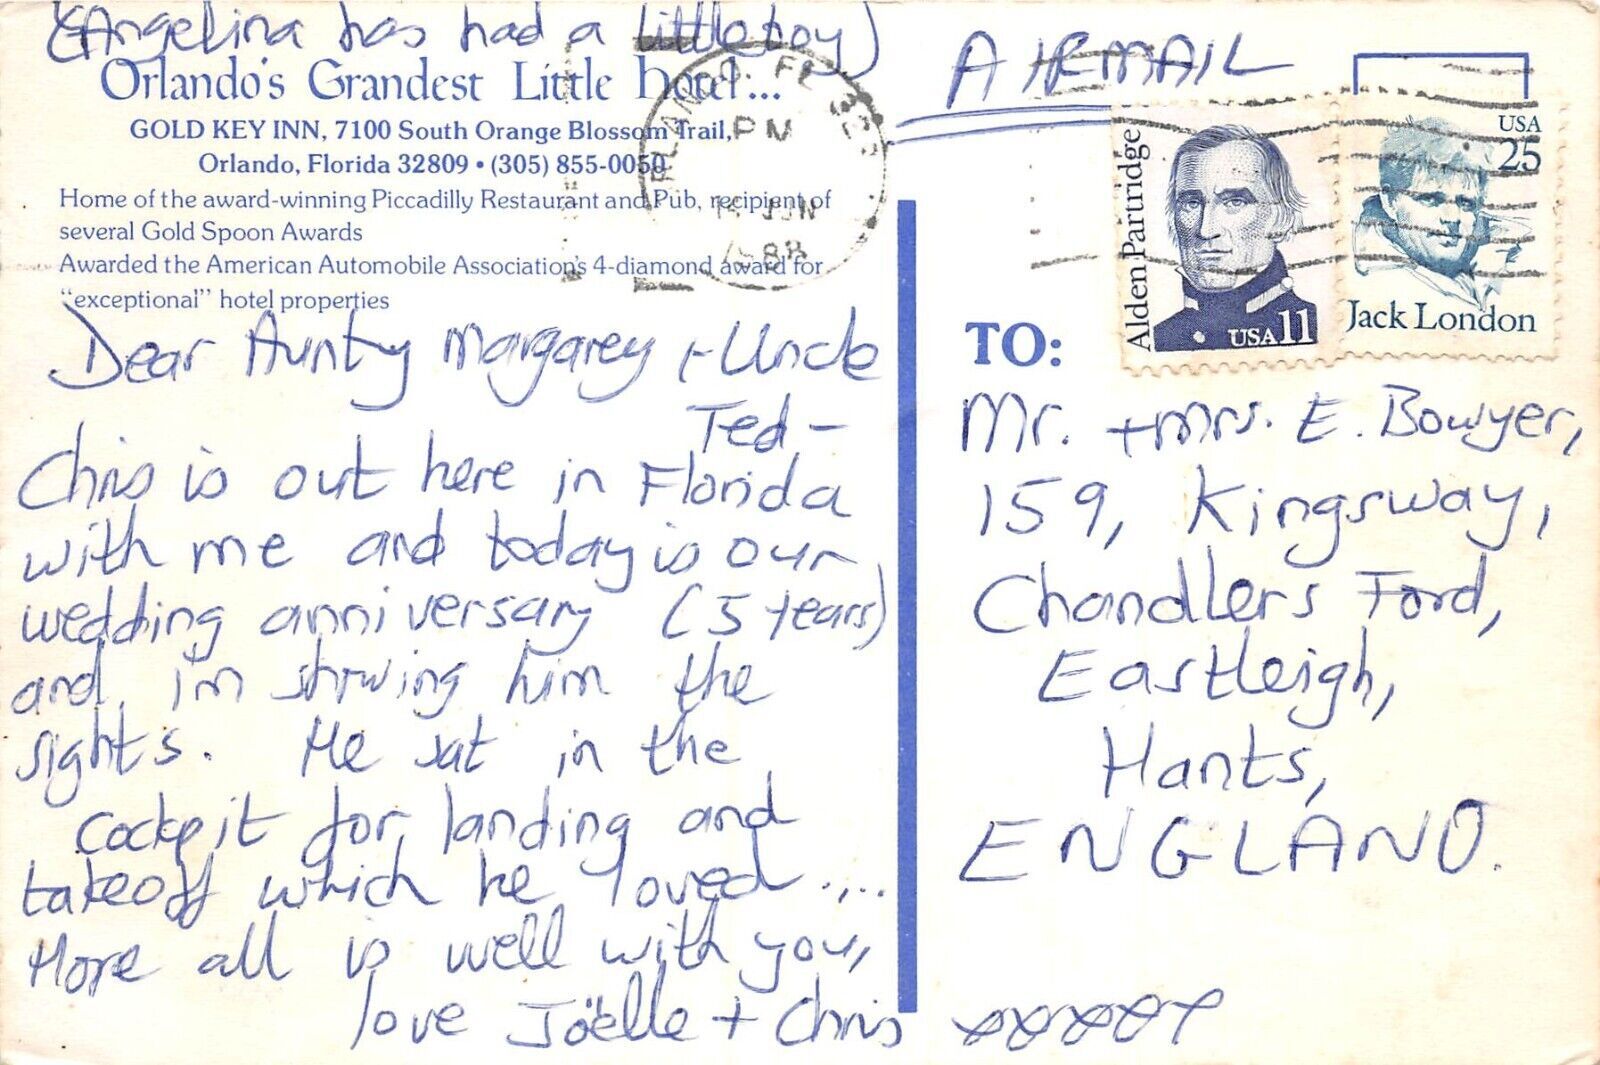 (Angelina has had a little boy)
Orlando's Grandest Little Hotel...
GOLD KEY INN, 7100 South Orange Blossom Trail,
Orlando, Florida 32809 • (305) 855-0050
Home of the award-winning Piccadilly Restaurant and Pub, recipient of
several Gold Spoon Awards
Awarded the American Automobile Association's 4-diamond award for
"exceptional" hotel properties
Dear Aunty Margarey + Uncle
Ted -
Chris is out here in Florida
with me and today is our
wedding anniversary (5 years)
and i'm showing him the
sights. He sat in the
cockpit for landing and
takeoff which he loved ....
Hope all is well with you,
love Joëlle + Chris xxxxx
ORLANDO, FL
PM
JUN
1988
AIRMAIL
Alden Partridge
USA 11
USA
25
Jack London
TO:
Mr. + Mrs. E. Bowyer,
159, Kingsway,
Chandlers Ford,
Eastleigh,
Hants,
ENGLAND.